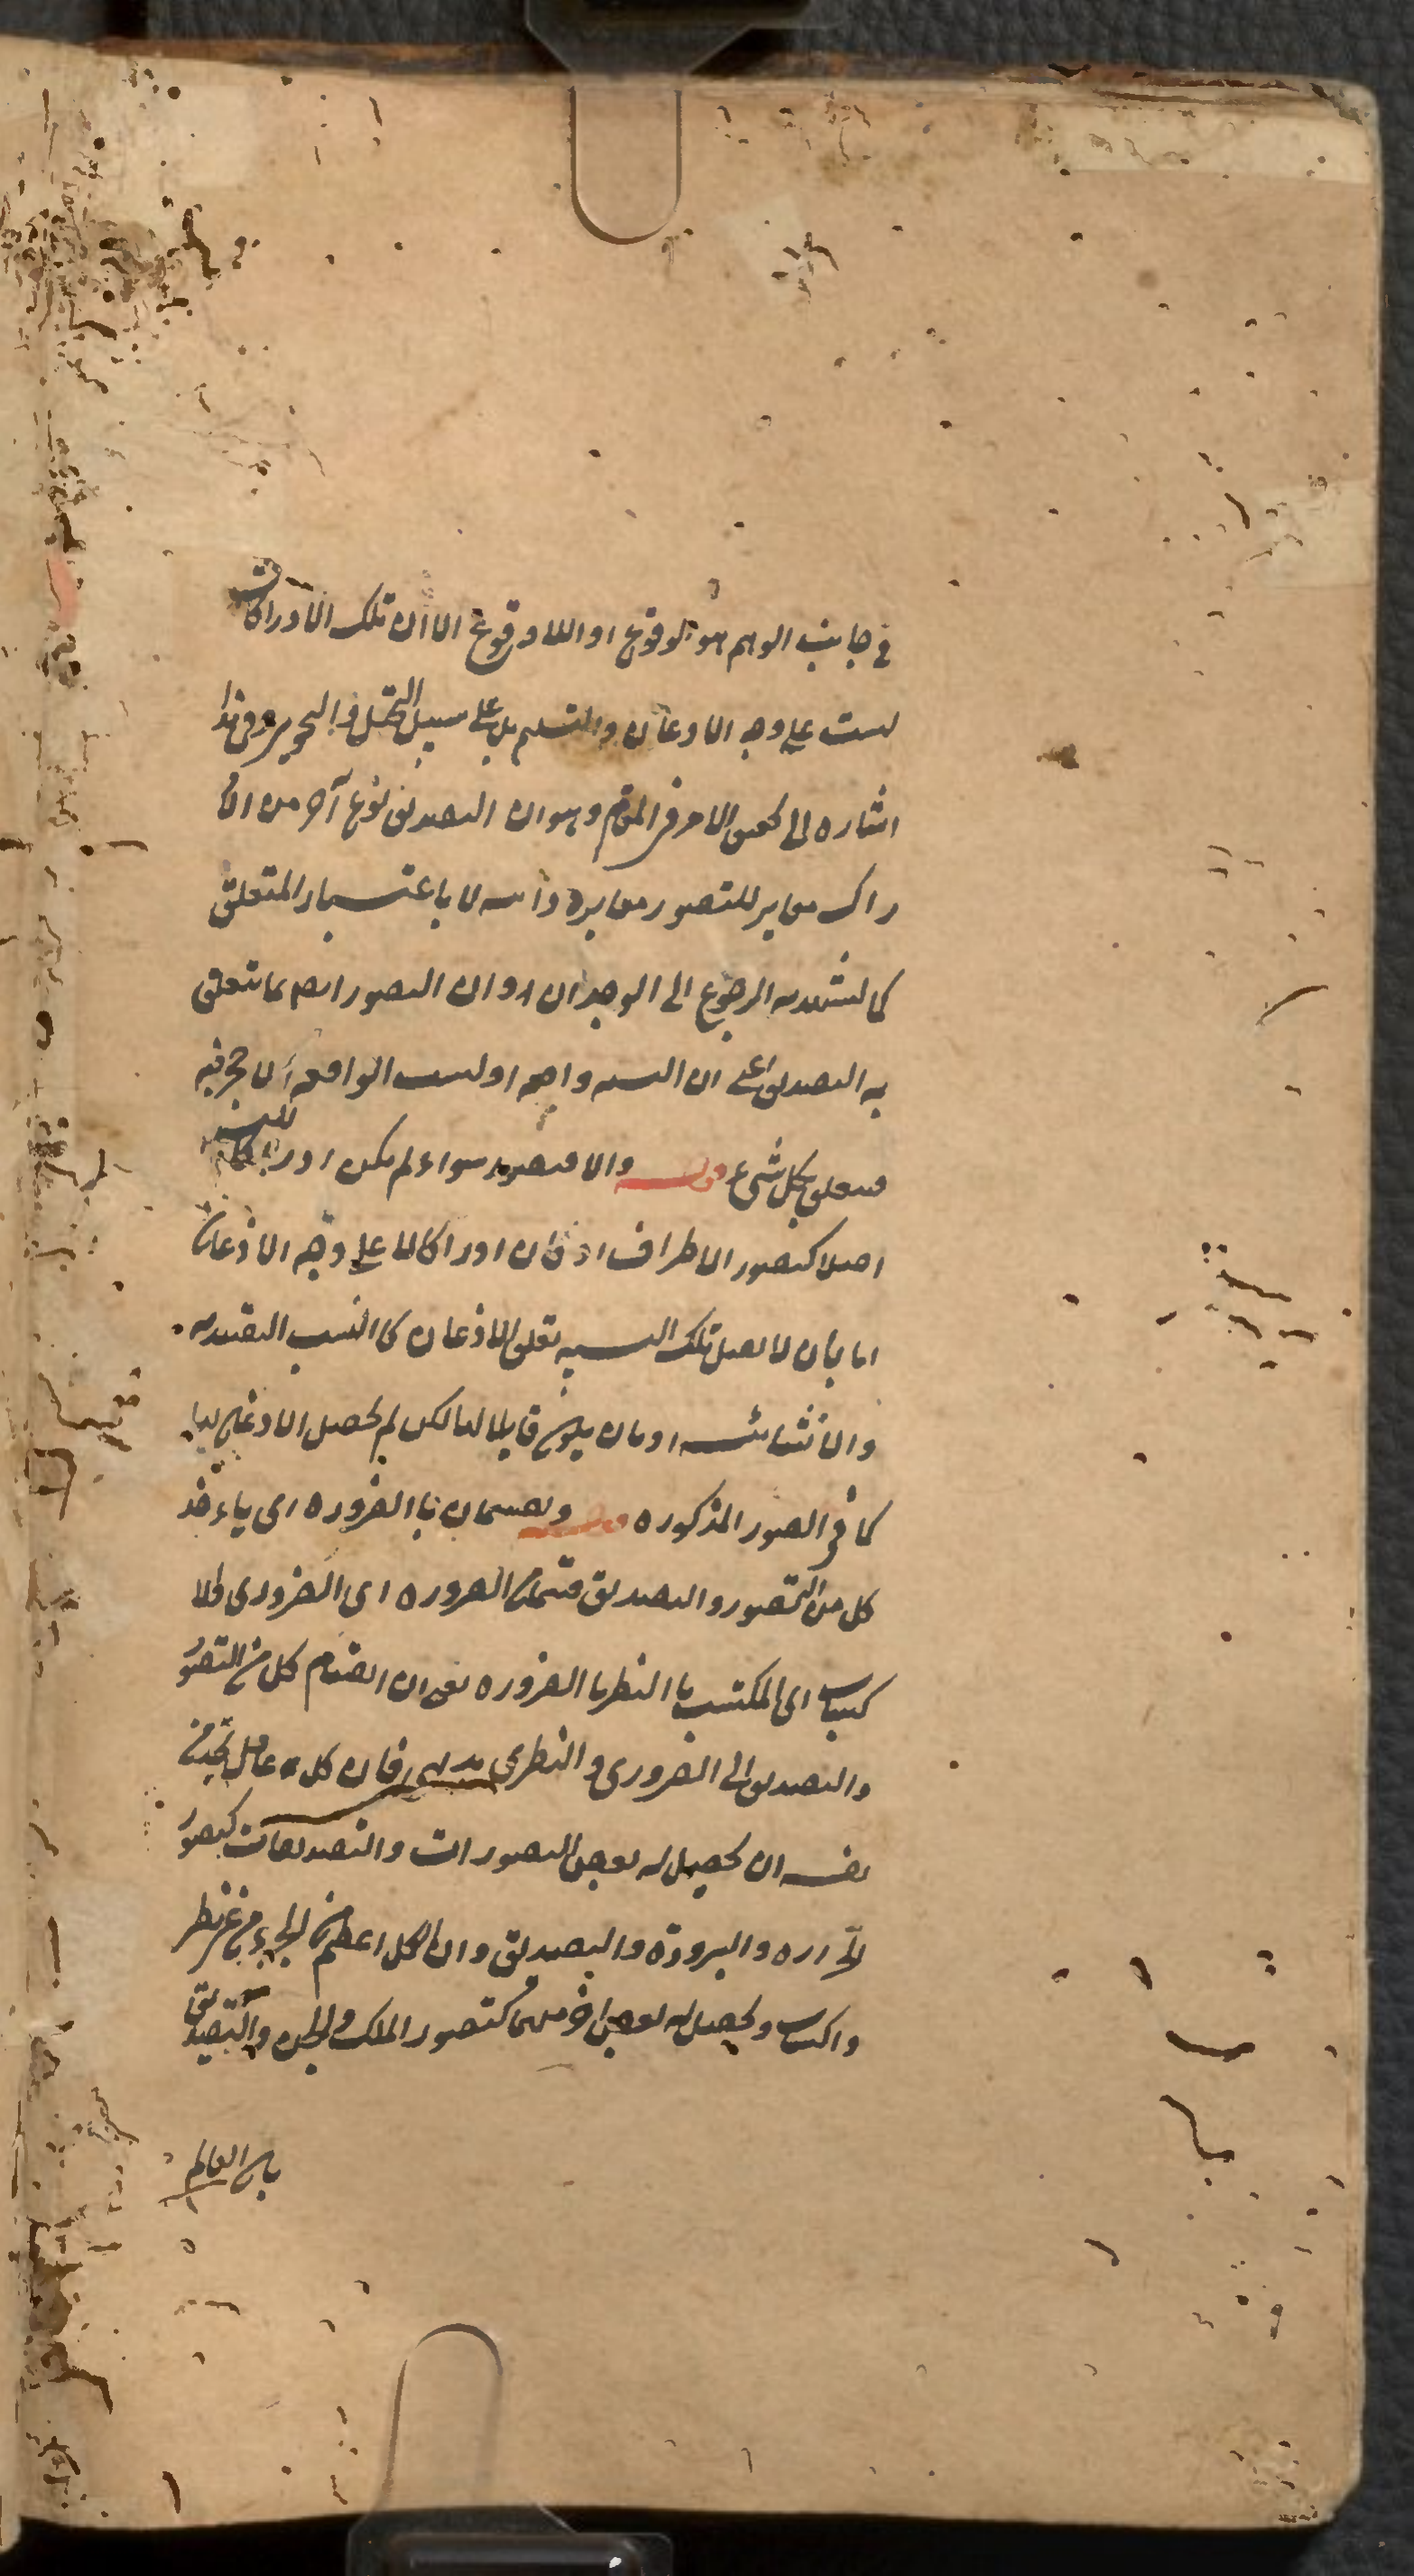 في جانب الوهم هو الوقوع او اللا وقوع الا ان تلك الادراكات
ليست على وجه الاذعان والتسليم بل على سبيل التخيل والتجويز وفي هذا
اشاره الى تحقيق الامر في المقام وهو ان التصديق نوع آخر من الاد
راك مغاير للتصور مغايرة ذاتيه لا باعتبار المتعلق
كما يشهد به الرجوع الى الوجدان او ان التصور ايضا بما يتعلق
به التصديق اعني ان النسبه واقعه او ليست بواقعه اذ لا حجر فيه
فيتعلق بكل شيء قوله والا فتصور سواء لم يكن ادراكا للنسبه
اصلا كتصور الاطراف اذ كان ادراكا لها على وجه الاذعان
اما بان لا يقبل تلك النسبه تعلق الاذعان كالنسب التقييديه
والانشائيه او بان يكون قابلا لها لكن لم يحصل الاذعان بها
كما في الصور المذكوره قوله ويقتسمان بالضروره اى ياءخذ
كل من التصور والتصديق قسمان الضروره اى الضرورى والا
كتساب اى المكتسب بالنظر بالضروره يعنى ان انقسام كل من التصور
والتصديق الى الضرورى والنظرى بديهى فان كل عاقل يجد من
نفسه ان يحصل له بعض التصورات والتصديقات كتصور
الحراره والبرودة والتصديق وان الكل اعظم من الجزء من غير نظر
واكتساب ويحصل له بعض اخر منهما كتصور الملك والجن والتصديق
بان العالم